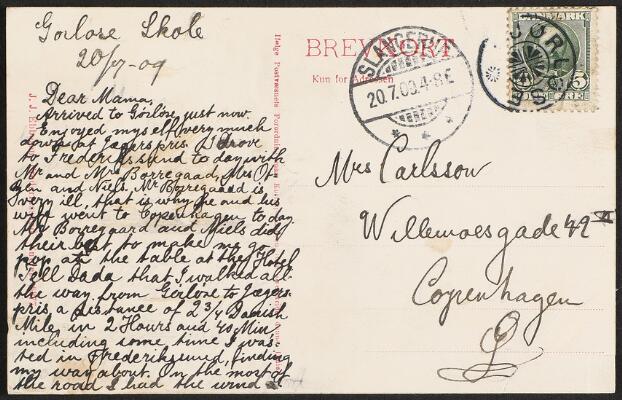 Görlöse Skole
20/7-09
Dear Mama,
Arrived to Görlöse just now.
Enjoyed myself very much
down at Jægerspris. I drove
to Frederikssund to day with
Mr and Mrs Borregaad, Mrs
and Niels. Mr Borregaard is
very ill, that is why he and his
wife went to Copenhagen to day.
Mr Borregaard and Niels did
their best to make me go
pop at the table at the Hotel
Tell Dada that I walked all
the way from Görlöse to Jægers-
pris a distance of 2 3/4 Danish
Mile in 2 Hours and 40 Min
including some time I was-
ted in Frederikssund, finding
my way about. On the most of
the road I had the wind
BREVKORT
Kun for Adressen
SLANGERUP
20.7.09.4-8E
DANMARK
5
ØRE
Mrs Carlsson
Willemoesgade 42
Copenhagen